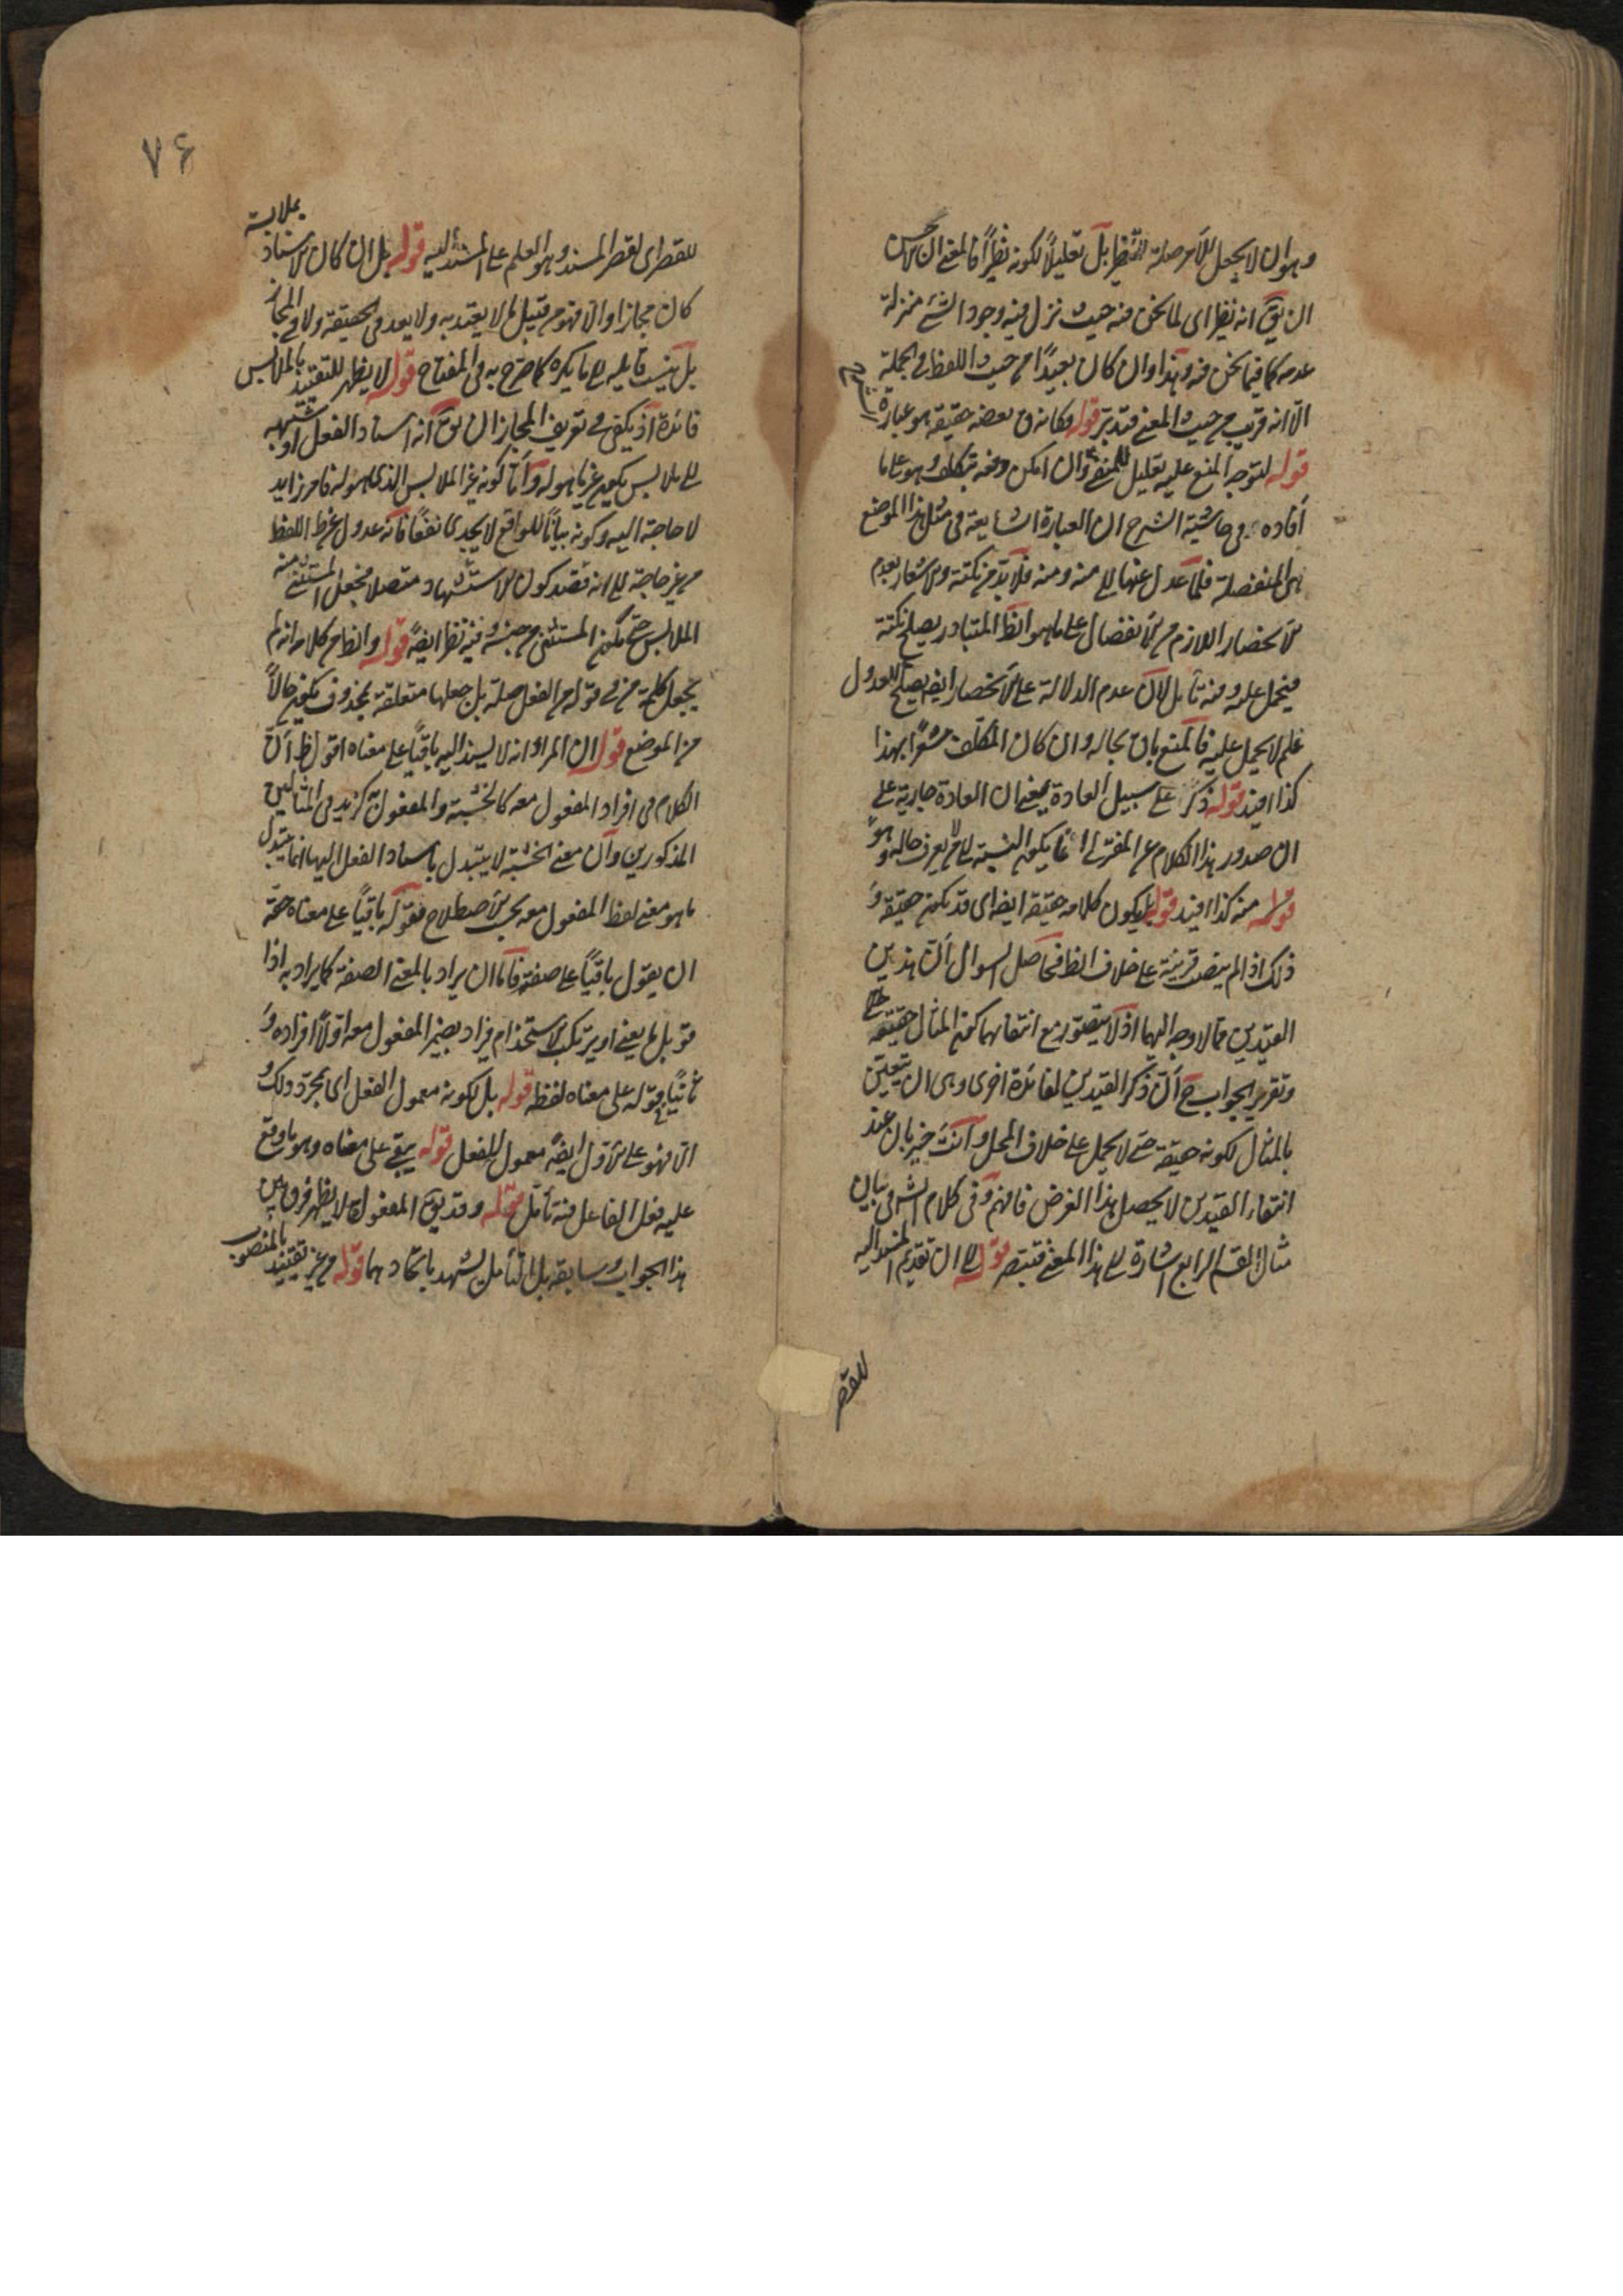 وهو ان لا يجعل اللام صلة التنظير بل تعليلا لكونه نظيرا فالمعنى ان الاحسن
ان يق انه نظير اى لما نحن فيه حيث نزل فيه وجود الشئ منزلة
عدمه كما فيما نحن فيه وهذا وان كان بعيدا من حيث اللفظ فى الجملة
الا انه قريب من حيث المعنى فتدبر قوله وكانه فى بعضه حقيقة هو عبارة
قوله لتوجه المنع عليه تعليل للمنفى وان امكن دفعه بتكلف وهو على ما
افاده فى حاشية الشرح ان العبارة الشايعة فى مثل هذا الموضع
هى المنفصلة فلما عدل عنها الى منه ومنه فلا بد من نكتة والاشعار بعدم
الانحصار اللازم من الانفصال على ما هو الظ المتبادر يصلح نكتة
فيحمل عليه وفيه تأمل لان عدم الدلالة على الانحصار ايضا يصلح للعدول
فلم لا يحمل عليه فالمنع باق بحاله وان كان المكلف مشعرا بهذا
كذا افيد قوله ذكر على سبيل العادة بمعنى ان العادة جارية على
ان صدور هذا الكلام عن المفترى انما يكون بالنسبة الى من لا يعرف حاله وهو
قوله منه كذا افيد قوله بل يكون كلامه حقيقة ايضا اى قد يكون حقيقة و
ذلك اذا لم ينصب قرينة على خلاف الظ فحاصل السوال ان هذين
القيدين مما لا وجه لهما اذ لا يتصور مع انتفائهما كون المثال حقيقة
وتقرير الجواب ح ان ذكر القيدين لفائدة اخرى وهى ان يتعلق
بالمثال لكونه حقيقة حتى لا يحمل على خلاف المحل وانت خبير بان عند
انتفاء القيدين لا يحصل هذا الغرض فافهم وفى كلام الش فى بيان
مثال القسم الرابع اشارة الى هذا المعنى فتبصر قوله الى ان تقديم المسند اليه
للقصر
٧۶
للقصر اى لقصر المسند وهو العلم على المسند اليه قوله بل ان كان الاسناد بملابسة
كان مجازا والا فهو من قبيل ما لا يعتد به ولا يعد فى الحقيقة ولا فى المجاز
بل ينسب قايله الى ما يكره كما صرح به فى المفتاح قوله لا يظهر للتقييد بالملابس
فائدة اذ يكفى فى تعريف المجاز ان يق انه اسناد الفعل او شبهه
الى ملابس يكون غير ما هو له واما كونه غير الملابس الذى هو له فامر زايد
لا حاجة اليه وكونه بيانا للواقع لا يجدى نفعا فانه عدول عن ظ اللفظ
من غير حاجة الى انه قصد كون الاستشهاد متصلا فجعل المستثنى منه
الملابس حتى يكون المستثنى من جنسه وفيه نظر ايضا قوله والظ من كلامه انه لم
يجعل كلمة من فى قوله من الفعل صلة بل جعلها متعلقة بمحذوف يكون حالا
من الموضع قوله ان المراد انه لا يسند اليه باقيا على معناه اقول ظ ان
الكلام فى افراد المفعول معه كالخشبة والمفعول له كزيد فى المثالين
المذكورين وان معنى الخشبة لا يتبدل باسناد الفعل اليها انما يتبدل
ما هو معنى لفظ المفعول معه بحسب الاصطلاح فقوله باقيا على معناه حقه
ان يقول باقيا على صفته فاما ان يراد بالمعنى الصفة كما يراد به اذا
قوبل بالعين او يرتكب الاستخدام فيراد بضمير المفعول معه اولا افراده و
ثانيا فى قوله على معناه لفظه قوله بل لكونه معمول الفعل اى بمجرد ذلك و
الا فهو على الاول ايضا معمول للفعل قوله يبقى على معناه وهو ما وقع
عليه فعل الفاعل فيه تأمل قوله وقد يق المفعول لا يظهر فرق بين
هذا الجواب وسابقه بل التأمل يشهد باتحادهما قوله من غير تقييد بالمنصوب